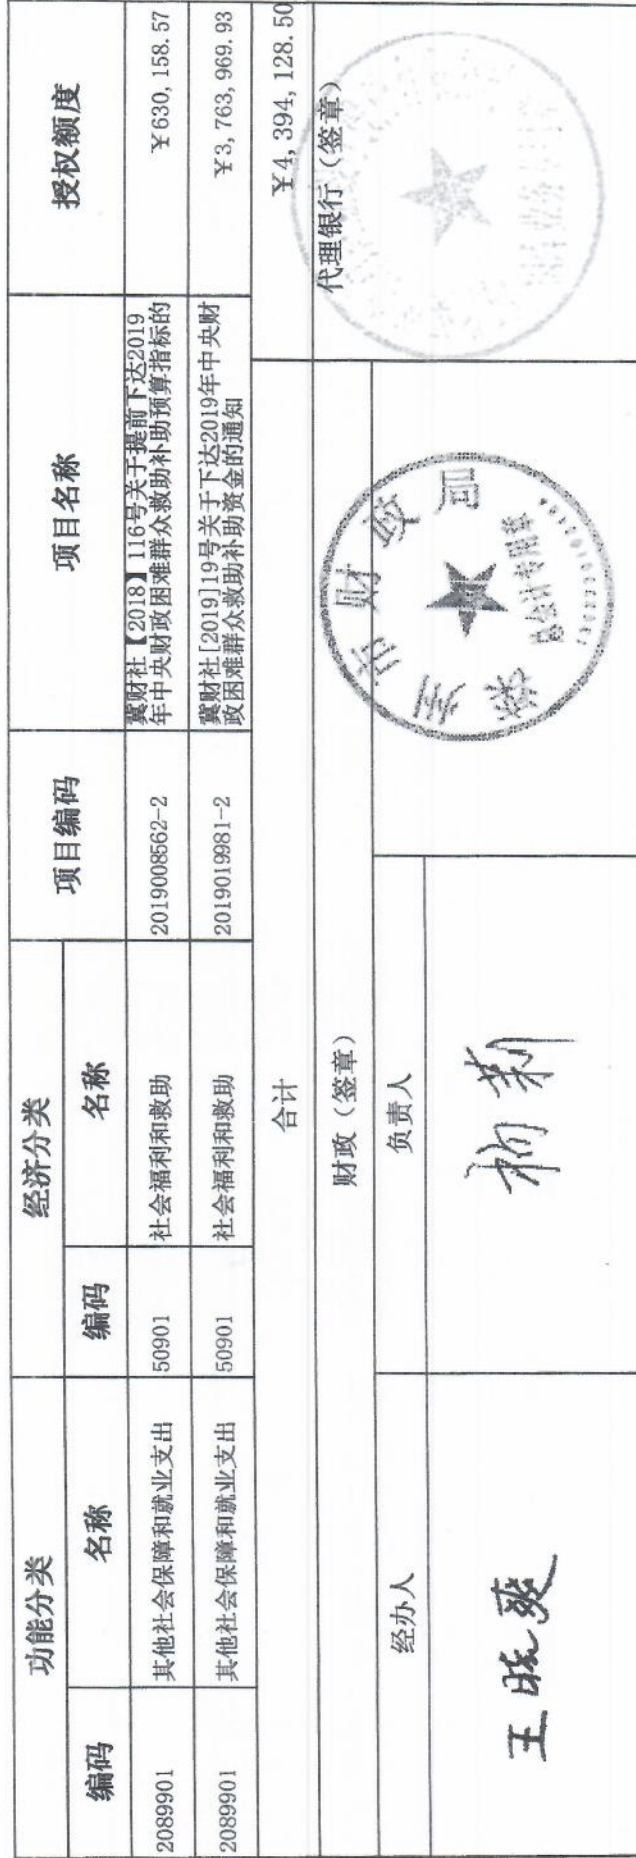 功能分类 经济分类 项目编码 项目名称 授权额度
编码 名称 编码 名称
2089901 其他社会保障和就业支出 50901 社会福利和救助 2019008562-2 冀财社【2018】116号关于提前下达2019
年中央财政困难群众救助补助预算指标的 ¥630,158.57
2089901 其他社会保障和就业支出 50901 社会福利和救助 2019019981-2 冀财社[2019]19号关于下达2019年中央财
政困难群众救助补助资金的通知 ¥3,763,969.93
合计 ¥4,394,128.50
财政（签章） 代理银行（签章）
经办人 负责人
王晓爽
市财政局
总会计专用章